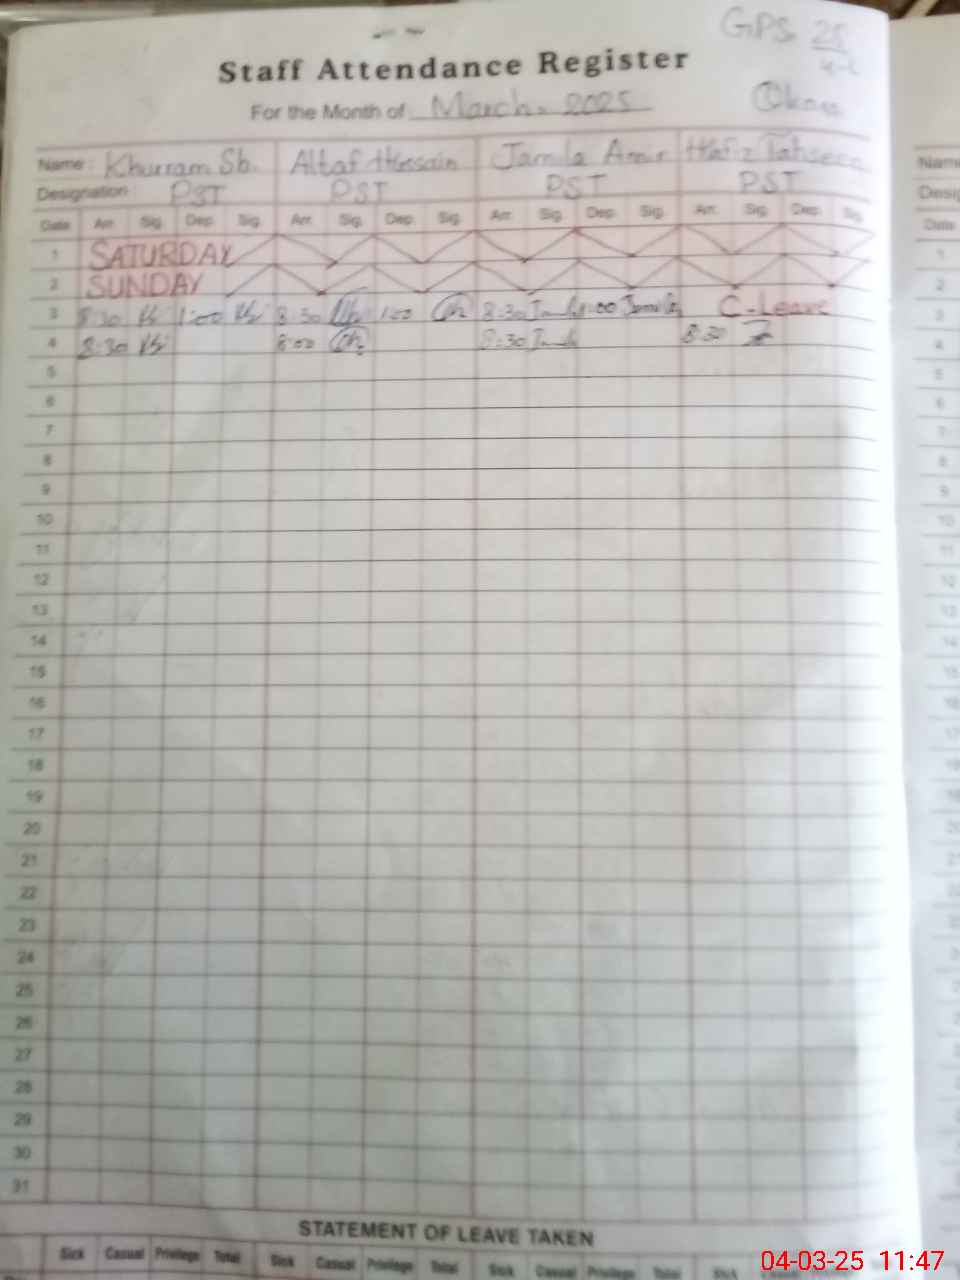 GPS 25
Staff Attendance Register
For the Month of March. 2025
Name: Khurram Sb. Altaf Hussain Jamila Amir Hafiz Tahseen
Designation PST PST PST PST
Date Arr. Sig. Dep. Sig. Arr. Sig. Dep. Sig. Arr. Sig. Dep. Sig. Arr. Sig. Dep. Sig.
1 SATURDAY
2 SUNDAY
3 8:30 1:00 8:30 1:00 8:30 1:00 Jamila C-Leave
4 8:30 8:00 8:30 8:30
5
6
7
8
9
10
11
12
13
14
15
16
17
18
19
20
21
22
23
24
25
26
27
28
29
30
31
STATEMENT OF LEAVE TAKEN
Sick Casual Privilege Total Sick Casual Privilege Total Sick Casual Privilege Total Sick
04-03-25 11:47
Name
Desig
Date
1
2
3
4
5
6
7
8
9
10
11
12
13
14
15